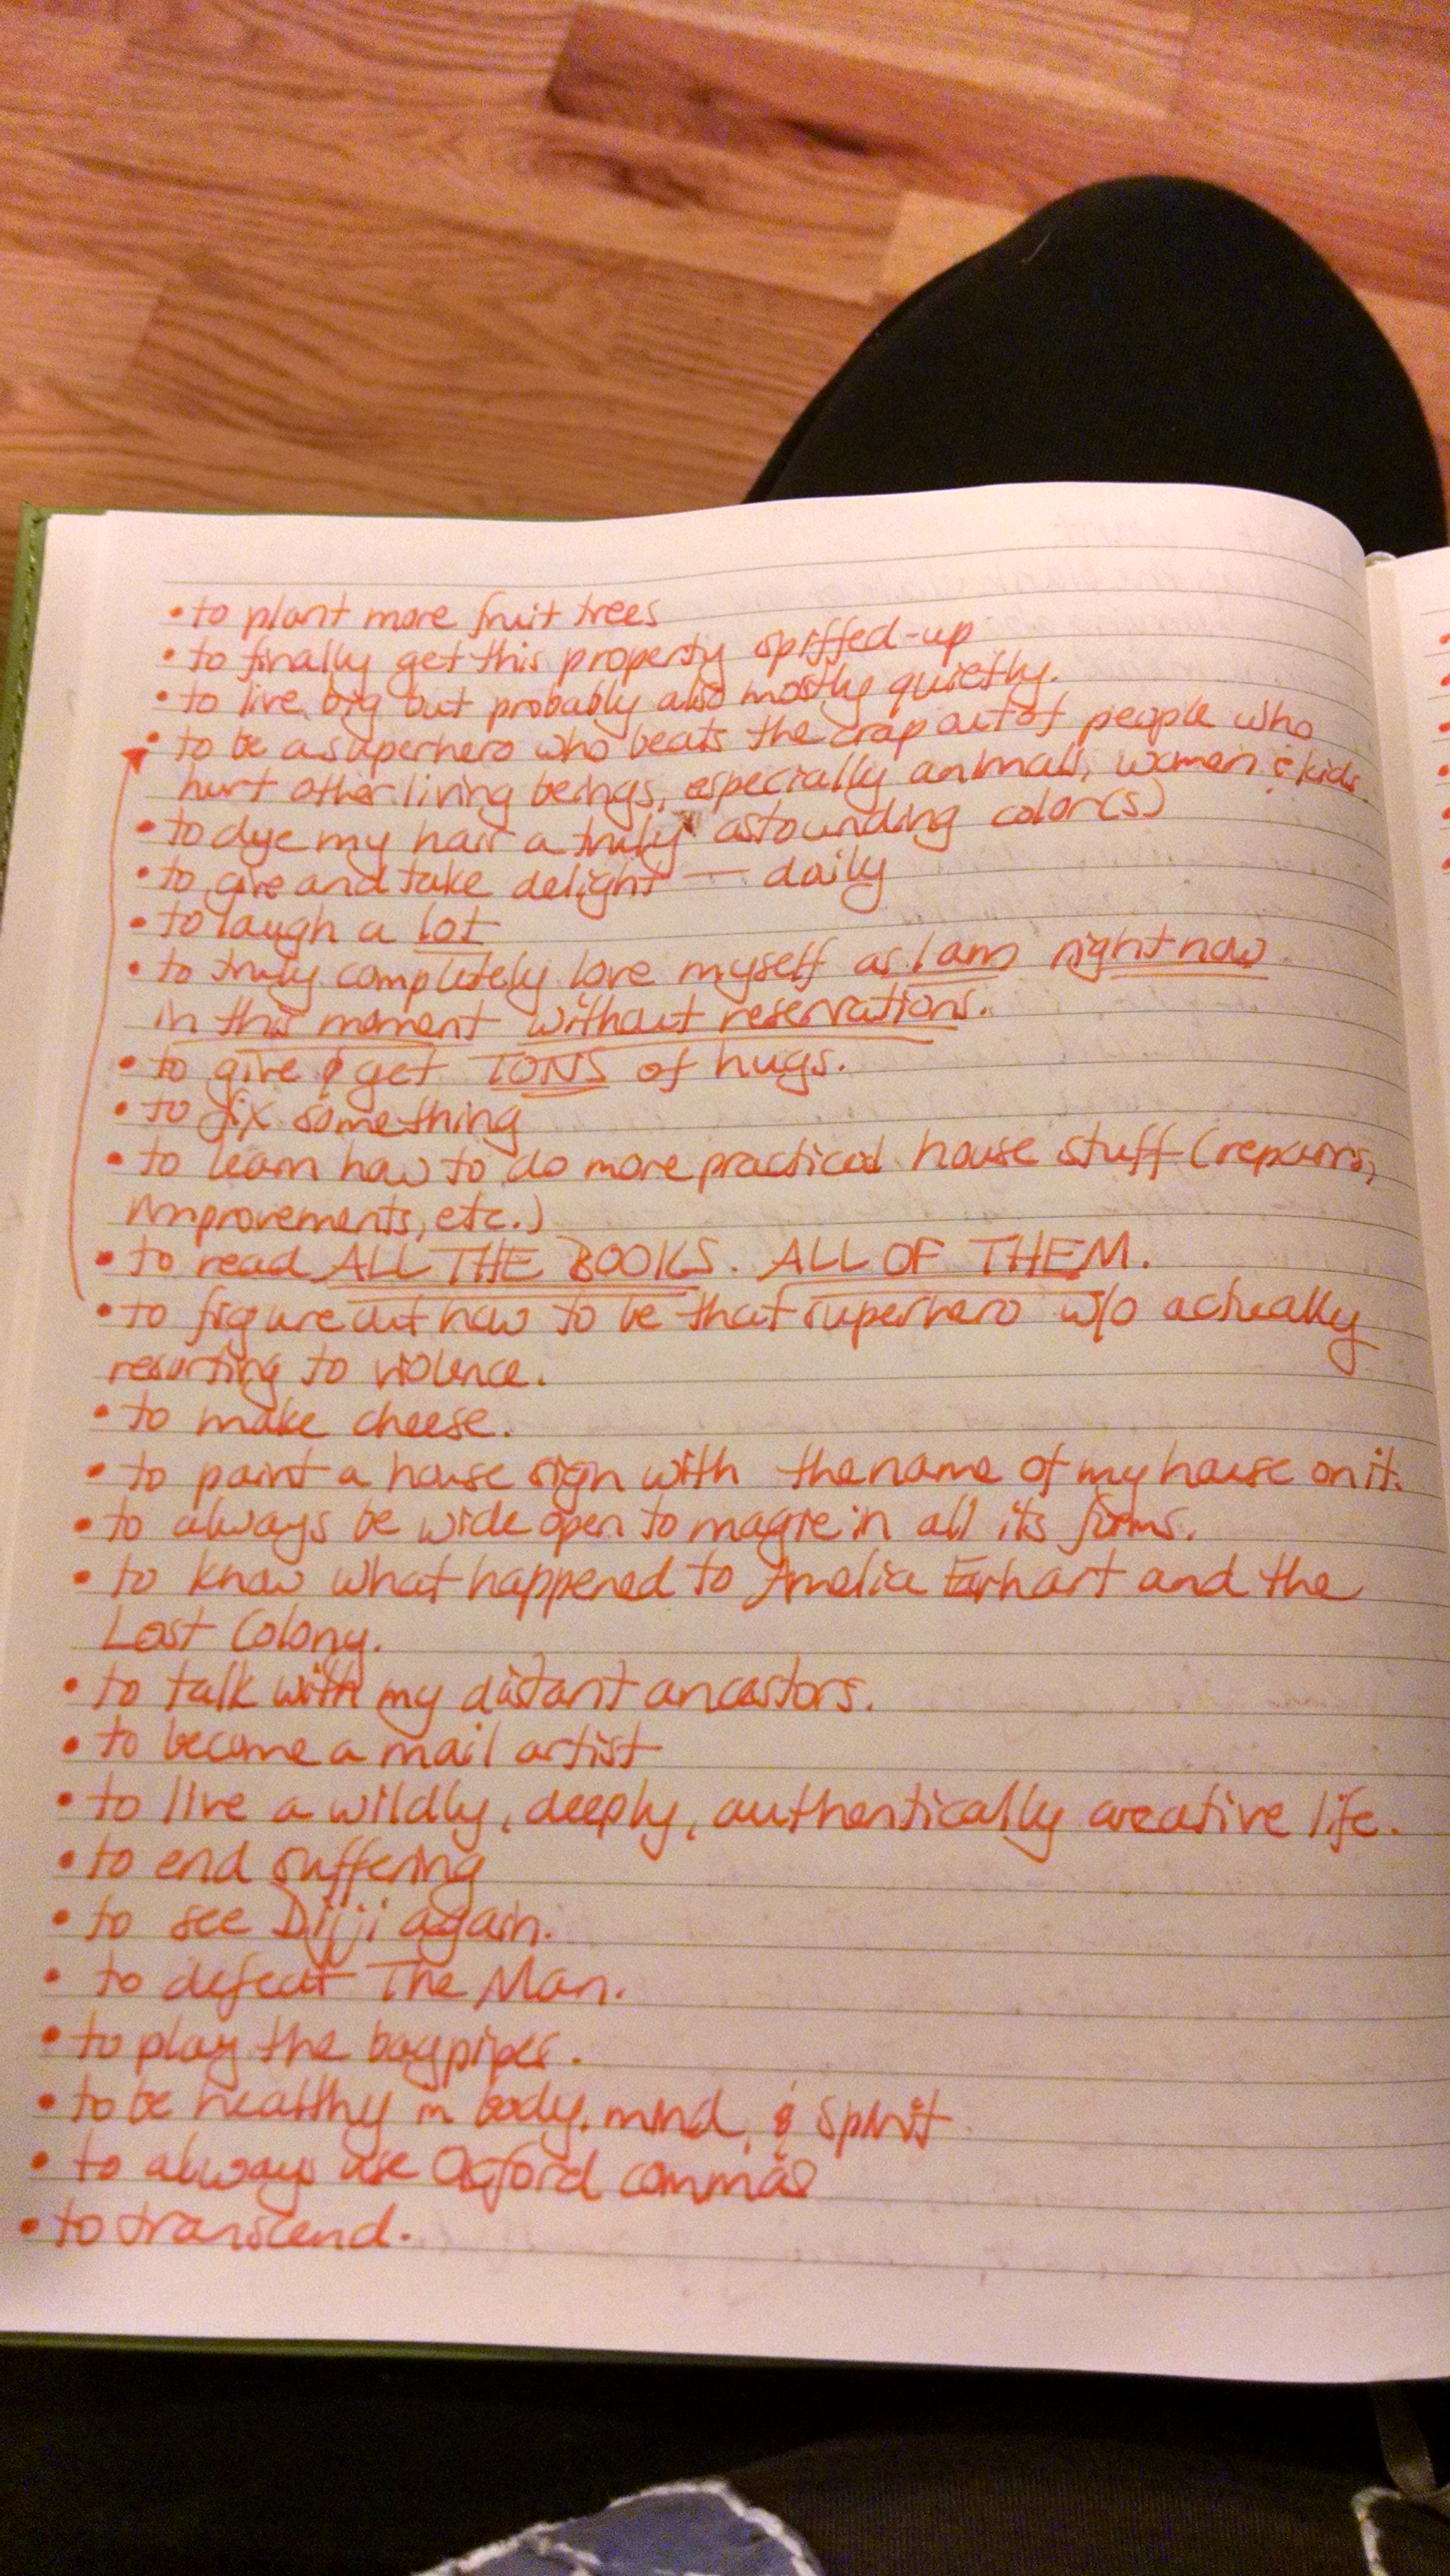 • to plant more fruit trees
• to finally get this property spiffed-up
• to live big but probably also mostly quietly.
• to be a superhero who beats the crap out of people who
hurt other living beings, especially animals, women & kids.
• to dye my hair a truly astounding color(s)
• to give and take delight — daily
• to laugh a lot
• to truly completely love myself as I am right now
in this moment without reservations.
• to give & get TONS of hugs.
• to fix something
• to learn how to do more practical house stuff (repairs,
improvements, etc.)
• to read ALL THE BOOKS. ALL OF THEM.
• to figure out how to be that superhero w/o actually
resorting to violence.
• to make cheese.
• to paint a house sign with the name of my house on it.
• to always be wide open to magic in all its forms.
• to know what happened to Amelia Earhart and the
Lost Colony.
• to talk with my distant ancestors.
• to become a mail artist
• to live a wildly, deeply, authentically creative life.
• to end suffering
• to see Djiji again.
• to defeat The Man.
• to play the bagpipes.
• to be healthy in body, mind, & spirit
• to always use Oxford commas
• to transcend.